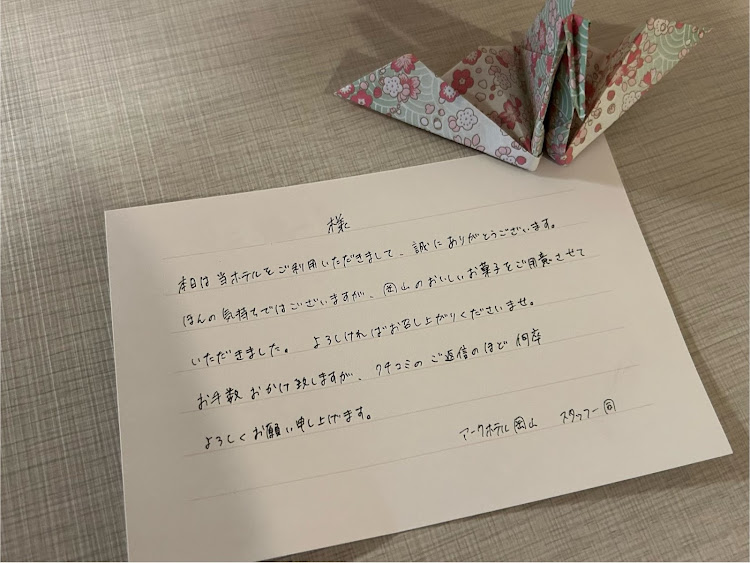 様
本日は当ホテルをご利用いただきまして、誠にありがとうございます。
ほんの気持ちではございますが、岡山のおいしいお菓子をご用意させて
いただきました。よろしければお召し上がりくださいませ。
お手数おかけ致しますが、クチコミのご返信のほど何卒
よろしくお願い申し上げます。
アークホテル岡山 スタッフ一同